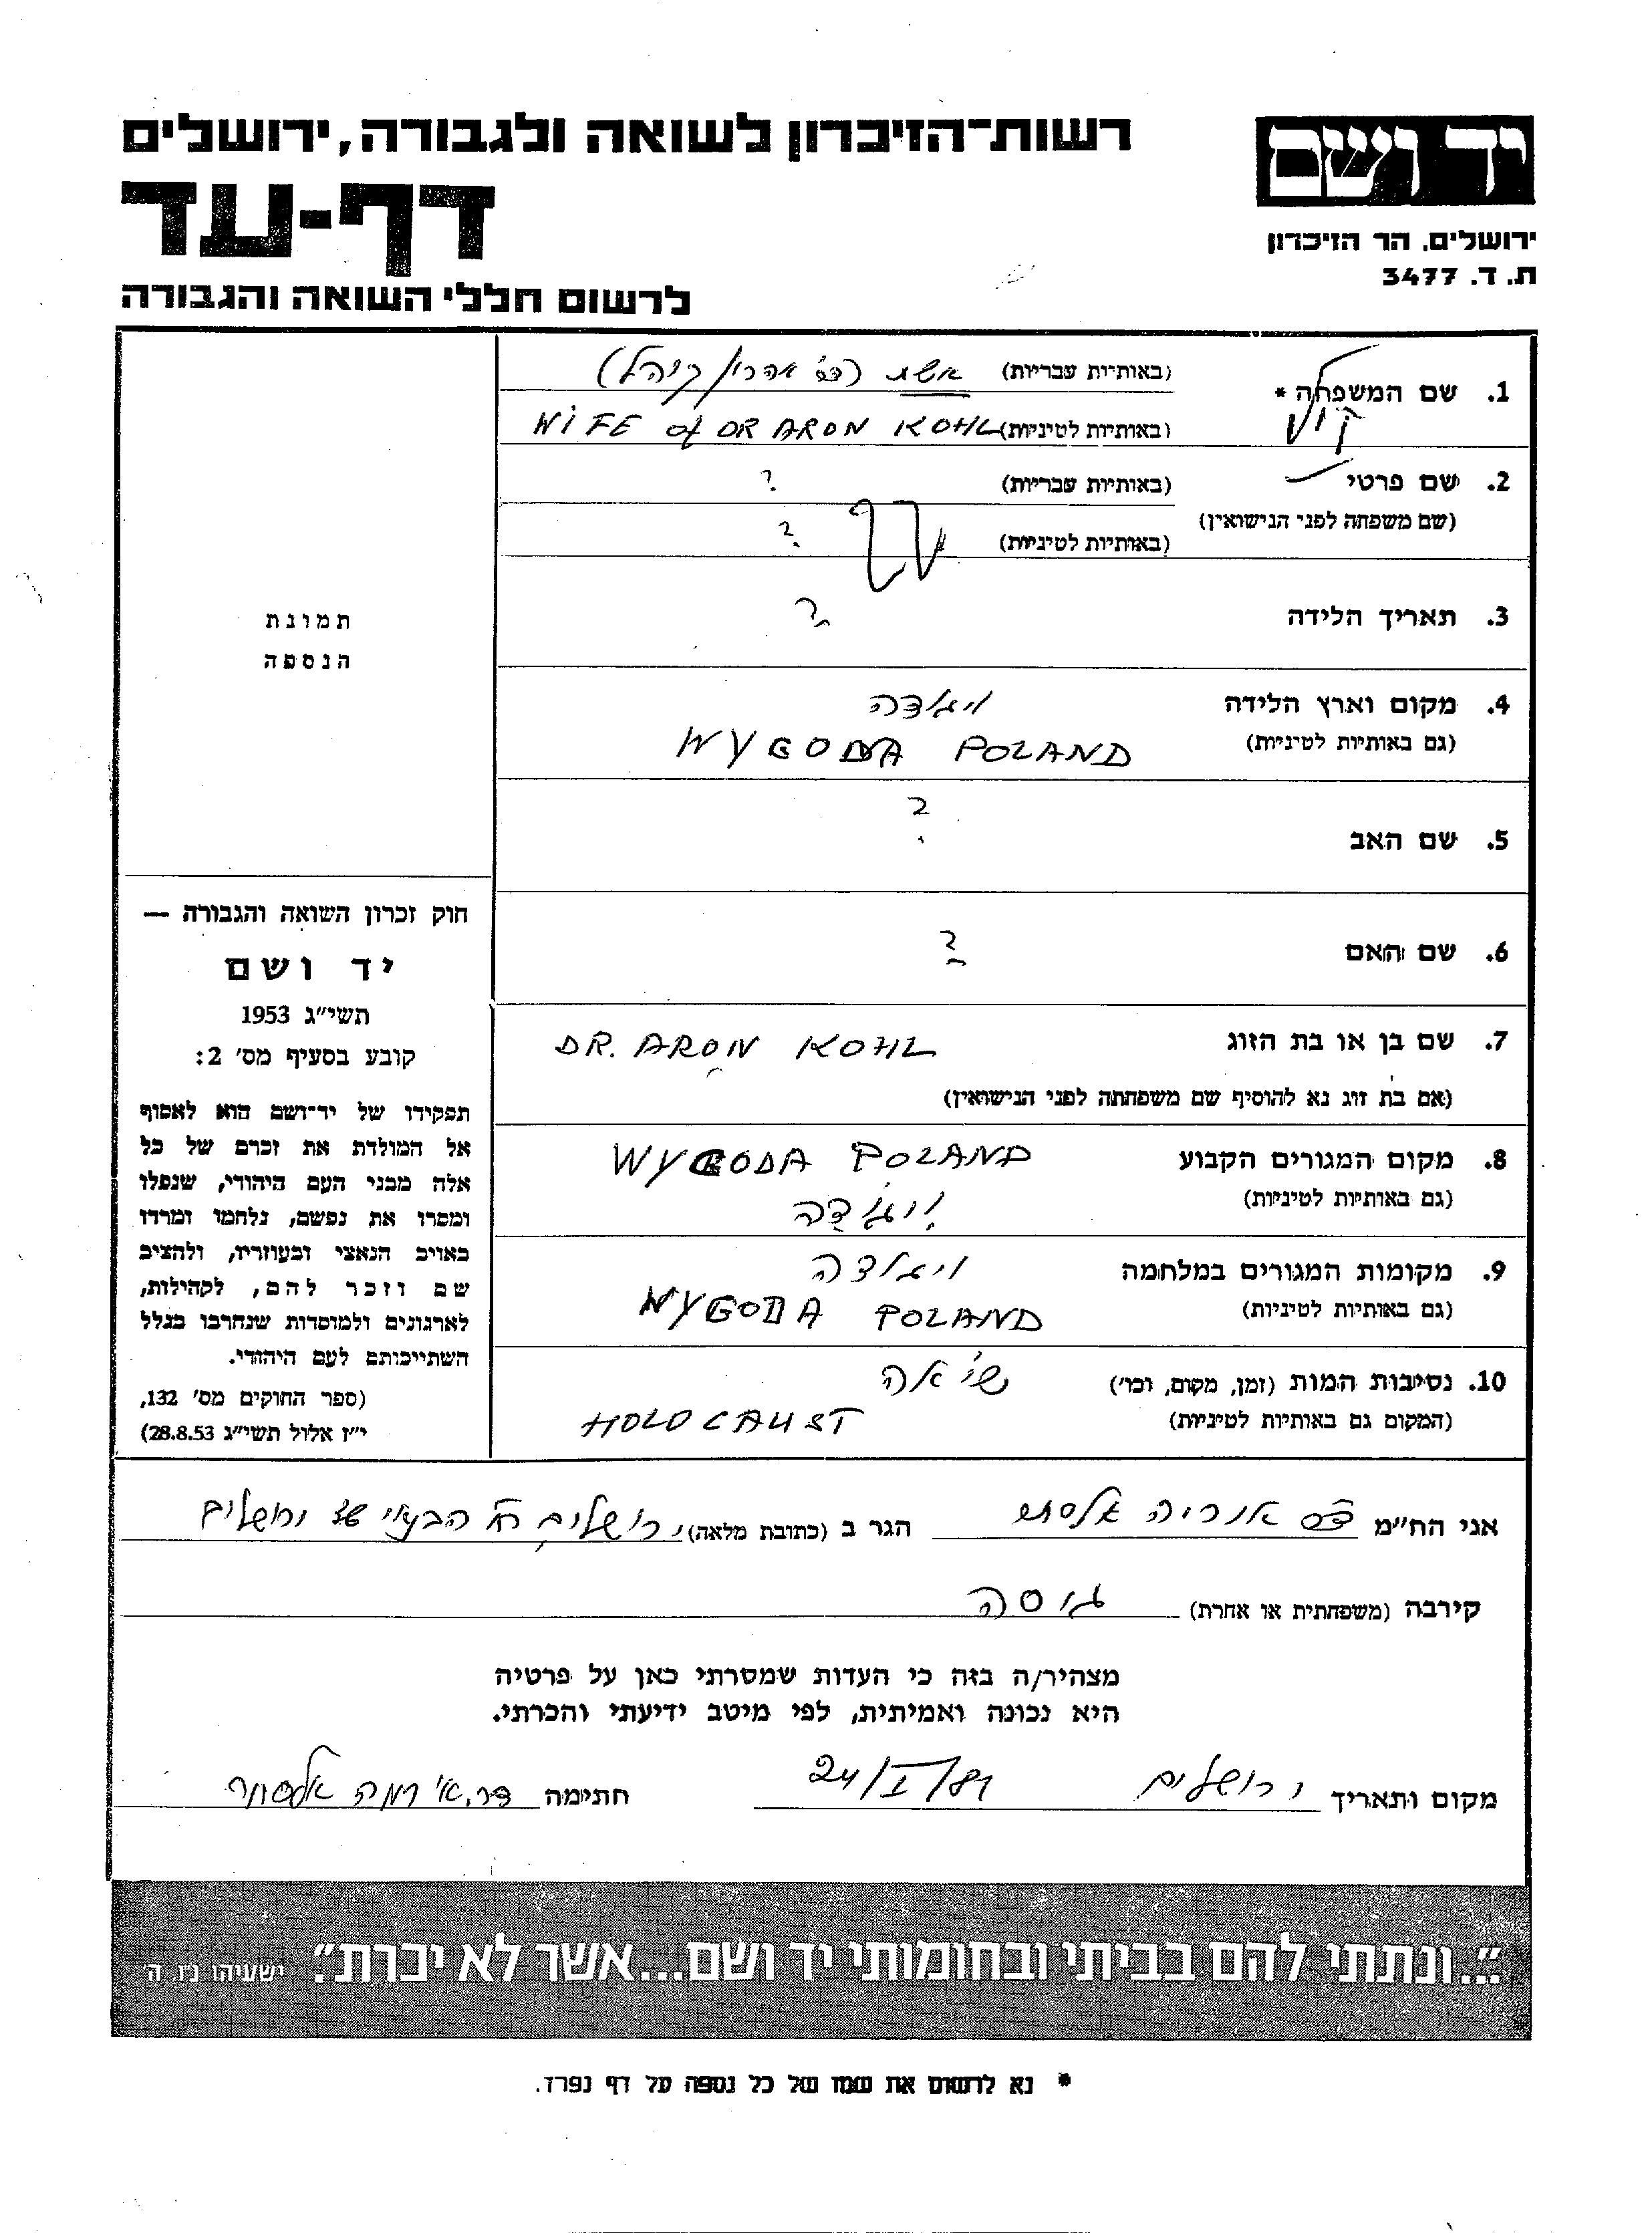 רשות־הזיכרון לשואה ולגבורה, ירושלים
דף-עד
לרשום חללי השואה והגבורה
יד ושם
ירושלים. הר הזיכרון
ת. ד. 3477
1. שם המשפחה *
(באותיות עבריות) אשת (ד״ר אהרון קוהל)
(באותיות לטיניות) WIFE of DR ARON KOHL
2. שם פרטי (באותיות עבריות) ?
(שם משפחה לפני הנישואין)
(באותיות לטיניות) ?
3. תאריך הלידה ?
4. מקום וארץ הלידה ויגודה
(גם באותיות לטיניות) WYGODA POLAND
5. שם האב ?
6. שם האם ?
7. שם בן או בת הזוג DR. ARON KOHL
(אם בת זוג נא להוסיף שם משפחתה לפני הנישואין)
8. מקום המגורים הקבוע WYGODA POLAND
(גם באותיות לטיניות) ויגודה
9. מקומות המגורים במלחמה ויגודה
(גם באותיות לטיניות) WYGODA POLAND
10. נסיבות המות (זמן, מקום, וכו') שואה
(המקום גם באותיות לטיניות) HOLOCAUST
תמונת
הנספה
חוק זכרון השואה והגבורה —
יד ושם
תשי״ג 1953
קובע בסעיף מס' 2:
תפקידו של יד־ושם הוא לאסוף
אל המולדת את זכרם של כל
אלה מבני העם היהודי, שנפלו
ומסרו את נפשם, נלחמו ומרדו
באויב הנאצי ובעוזריו, ולהציב
שם וזכר להם, לקהילות,
לארגונים ולמוסדות שנחרבו בגלל
השתייכותם לעם היהודי.
(ספר החוקים מס' 132,
י״ז אלול תשי״ג 28.8.53)
אני הח״מ הגר ב (כתובת מלאה) ירושלים ירושלים
קירבה (משפחתית או אחרת) גיסה
מצהיר/ה בזה כי העדות שמסרתי כאן על פרטיה
היא נכונה ואמיתית, לפי מיטב ידיעתי והכרתי.
מקום ותאריך ירושלים 24/I/89 חתימה
"...ונתתי להם בביתי ובחומותי יד ושם...אשר לא יכרת". ישעיהו נ״ו. ה'
* נא לרשום את שמו של כל נספה על דף נפרד.